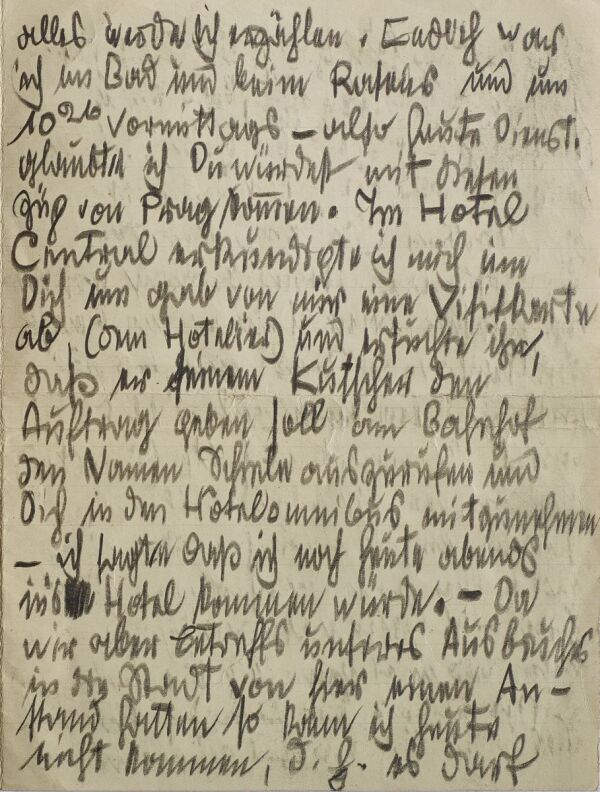 alles werde ich erzählen. Endlich war
ich im Bad und beim Raseur und um
10 26 Vormittags – also heute Dienst.
glaubte ich Du würdest mit diesen
Zug von Prag kom̅en. Im Hotel
Central erkundigte ich mich um
Dich und gab von mir eine Visitkarte
ab, (dem Hotelier) und ersuchte ihn,
daß er seinem Kutscher den
Auftrag geben soll am Bahnhof
den Namen Schiele auszurufen und
Dich in den Hotelomnibus mitzunehmen
– ich sagte daß ich noch heute abends
ins Hotel kommen würde. – Da
wir aber betreffs unseres Ausbruchs
in die Stadt von hier einen An-
stand hatten so kam ich heute
nicht kommen, d. h. es darf